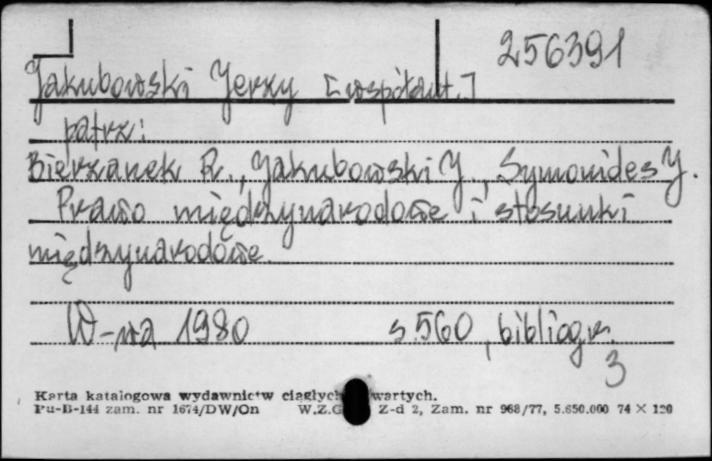 256391
Jakubowski Jerzy [współaut.]
patrz:
Bierzanek R., Jakubowski J., Symonides J.
Prawo międzynarodowe i stosunki
międzynarodowe.
W-wa 1980 s. 560, bibliogr.
3
Karta katalogowa wydawnictw ciągłych wartych.
Pu-B-144 zam. nr 1674/DW/On W.Z.G Z-d 2, Zam. nr 968/77, 5.650.000 74 × 120